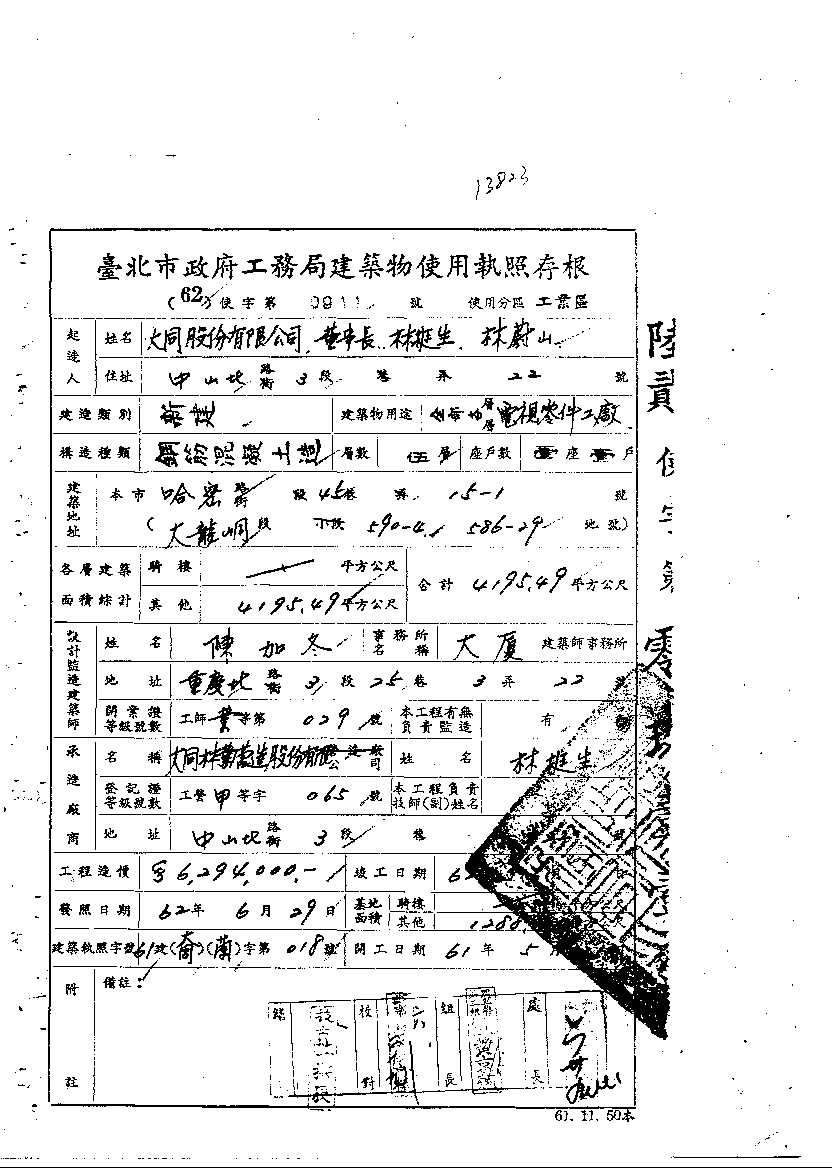 13823
臺北市政府工務局建築物使用執照存根
(62)使字第 0911 號 使用分區 工業區
起造人 姓名 大同股份有限公司、董事長、林挺生、林蔚山
住址 中山北路街 3 段 巷 弄 22 號
建造類別 新建 建築物用途 電視零件工廠
構造種類 鋼筋混凝土造 層數 伍層 座戶數 壹座壹戶
建築地址 本市 哈密路街 段 45巷 弄 15-1 號
(大龍峒段 小段 590-4、586-29 地號)
各層建築面積綜計 騎樓 平方公尺 合計 4195.49 平方公尺
其他 4195.49 平方公尺
設計監造建築師 姓名 陳加冬 事務所名稱 大廈 建築師事務所
地址 重慶北路街 3 段 25 巷 3 弄 22 號
開業證等級號數 工師業字第 029 號 本工程有無負責監造 有
承造廠商 名稱 姓名 林挺生
登記證等級號數 工營甲等字 065 號 本工程負責技師(副)姓名
地址 中山北路街 3 段 巷
工程造價 $6,294,000.- 竣工日期 6
發照日期 62年 6月 29日 基地面積 騎樓
其他 1288
建築執照字號 61建( )(蘭)字第 018號 開工日期 61年 5月
附註 備註:
校對 組長 處長
61.11.50本
陸貳使字第零